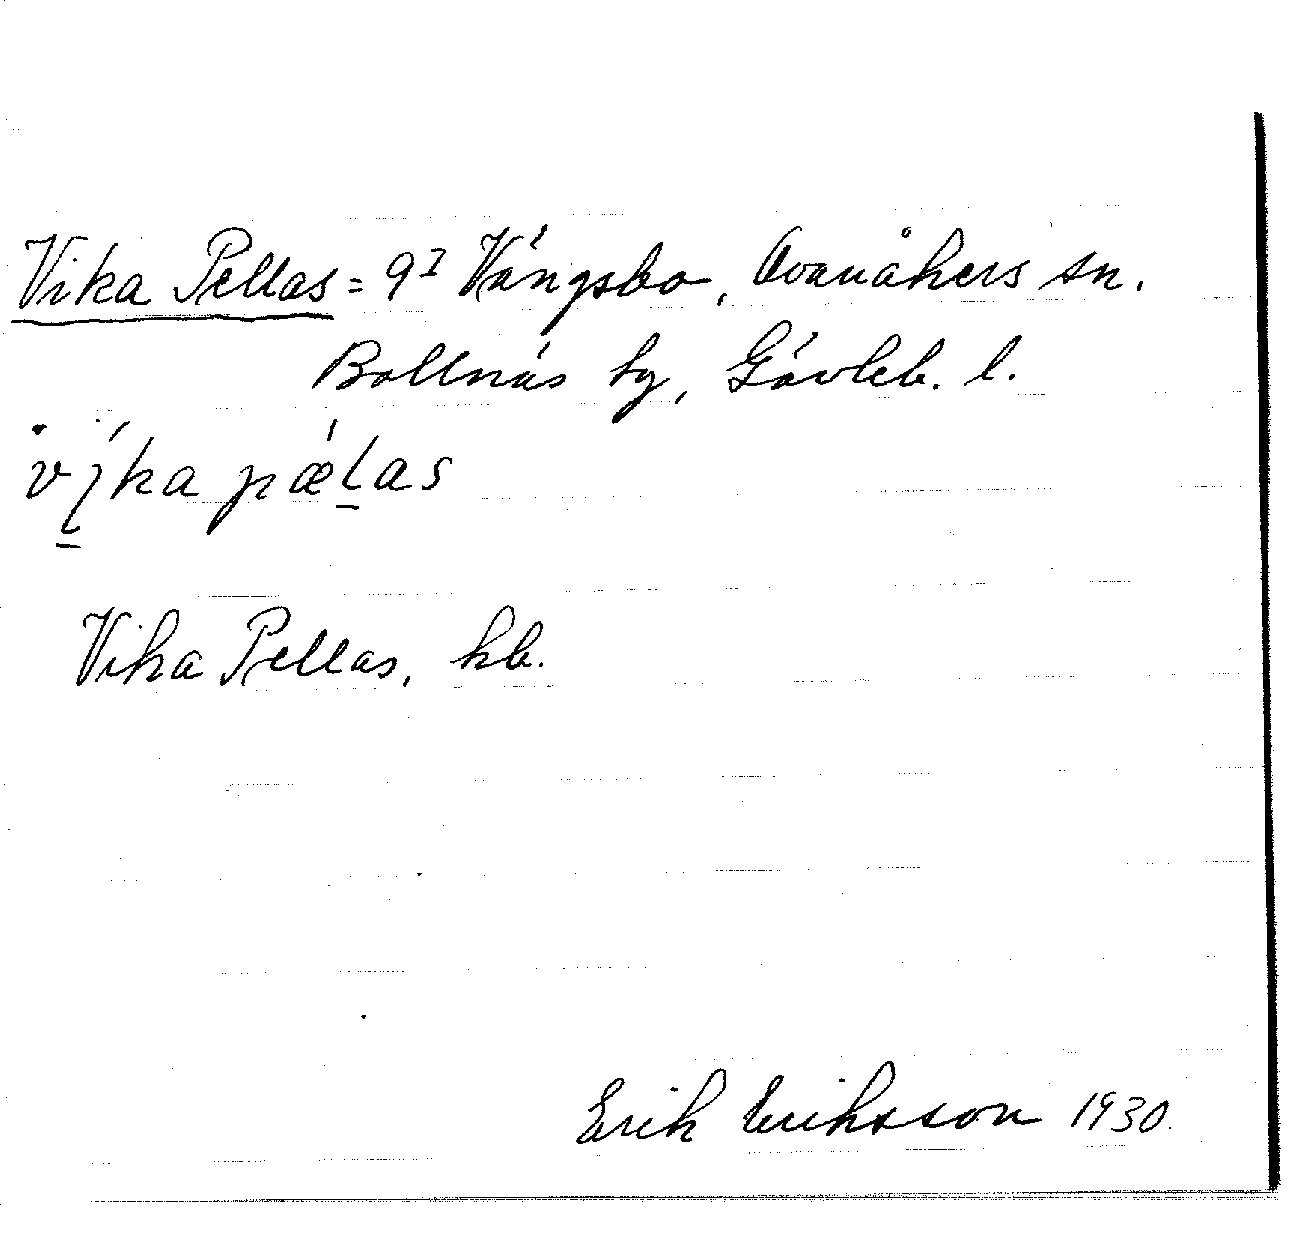 Vika Pellas = 9² Vängsbo, Ovanåkers sn.
Bollnäs tg, Gävleb. l.
vı̨ka pælas
Vika Pellas, kb.
Erik Eriksson 1930.